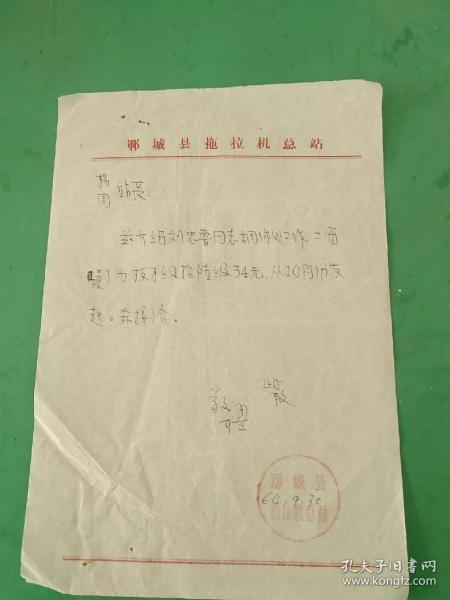 郸城县拖拉机总站
杨
周 站长：
兹介绍刘志普同志调你处工作工资
为技术级拾陆级34元，从10月份发
起。希接洽。
致
敬
礼
郸城县
64.9.30
孔夫子旧书网
www.kongfz.com